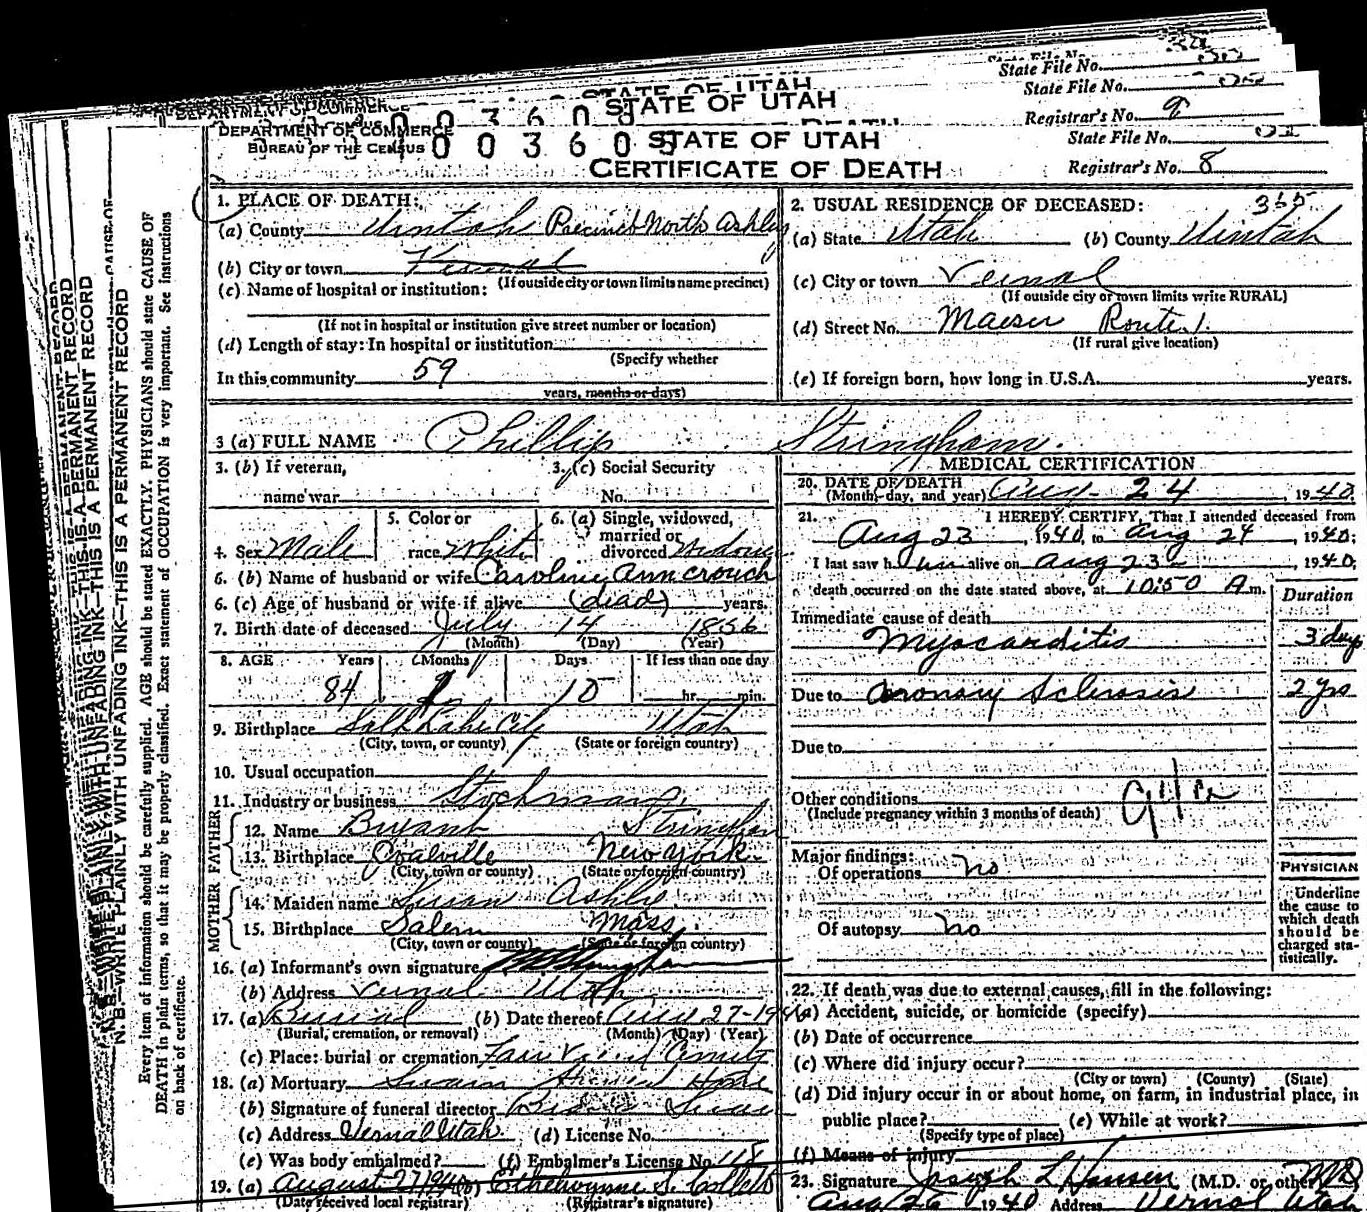 STATE OF UTAH
State File No.
State File No.
STATE OF UTAH
Registrar's No. 9
DEPARTMENT OF COMMERCE
BUREAU OF THE CENSUS
STATE OF UTAH
State File No.
CERTIFICATE OF DEATH
Registrar's No. 8
N. B.—WRITE PLAINLY WITH UNFADING INK—THIS IS A PERMANENT RECORD
Every item of information should be carefully supplied. AGE should be stated EXACTLY. PHYSICIANS should state CAUSE OF
DEATH in plain terms, so that it may be properly classified. Exact statement of OCCUPATION is very important. See instructions
on back of certificate.
1. PLACE OF DEATH:
(a) County Uintah Precinct North Ashley
(b) City or town Vernal
(If outside city or town limits name precinct)
(c) Name of hospital or institution:
(If not in hospital or institution give street number or location)
(d) Length of stay: In hospital or institution
(Specify whether
In this community 59
years, months or days)
2. USUAL RESIDENCE OF DECEASED: 365
(a) State Utah (b) County Uintah
(c) City or town Vernal
(If outside city or town limits write RURAL)
(d) Street No. Maeser Route 1.
(If rural give location)
(e) If foreign born, how long in U.S.A. years.
3 (a) FULL NAME Phillip Stringham.
3. (b) If veteran,
name war
3. (c) Social Security
No.
4. Sex Male
5. Color or
race White
6. (a) Single, widowed,
married or
divorced
6. (b) Name of husband or wife Caroline Ann Crouch
6. (c) Age of husband or wife if alive (dead) years.
7. Birth date of deceased July 14 1856
(Month) (Day) (Year)
8. AGE Years Months Days If less than one day
84 1 10 hr. min.
9. Birthplace Salt Lake City Utah
(City, town, or county) (State or foreign country)
10. Usual occupation
11. Industry or business Stockman
FATHER
12. Name Bryant Stringham
13. Birthplace Coalville New York.
(City, town or county) (State or foreign country)
MOTHER
14. Maiden name Susan Ashby
15. Birthplace Salem Mass.
(City, town or county) (State or foreign country)
16. (a) Informant's own signature
(b) Address Vernal Utah
17. (a) Burial (b) Date thereof Aug 27-1940
(Burial, cremation, or removal) (Month) (Day) (Year)
(c) Place: burial or cremation
18. (a) Mortuary Swain Home
(b) Signature of funeral director
(c) Address Vernal Utah. (d) License No.
(e) Was body embalmed? (f) Embalmer's License No. 118
19. (a) August 27 1940 (b) Ethelwynne S. Collett
(Date received local registrar) (Registrar's signature)
MEDICAL CERTIFICATION
20. DATE OF DEATH
(Month, day, and year) Aug 24, 1940
21. I HEREBY CERTIFY, That I attended deceased from
Aug 23, 1940, to Aug 24, 1940;
I last saw him alive on Aug 23, 1940;
death occurred on the date stated above, at 10:50 A m.
Duration
Immediate cause of death
Myocarditis 3 days
Due to Coronary Sclerosis 2 yrs
Due to
Other conditions
(Include pregnancy within 3 months of death)
Major findings:
Of operations no
Of autopsy no
PHYSICIAN
Underline
the cause to
which death
should be
charged sta-
tistically.
22. If death was due to external causes, fill in the following:
(a) Accident, suicide, or homicide (specify)
(b) Date of occurrence
(c) Where did injury occur?
(City or town) (County) (State)
(d) Did injury occur in or about home, on farm, in industrial place, in
public place? (e) While at work?
(Specify type of place)
(f) Means of injury
23. Signature Joseph L Hansen (M.D. or other) MD
Aug 26 1940 Address Vernal Utah